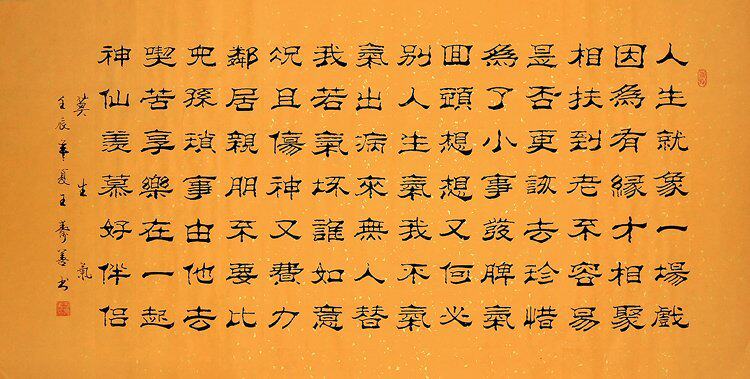 人生就象一場戲
因為有緣才相聚
相扶到老不容易
是否更該去珍惜
為了小事發脾氣
回頭想想又何必
別人生氣我不氣
氣出病來無人替
我若氣坏誰如意
況且傷神又費力
鄰居親朋不要比
兒孫瑣事由他去
喫苦享樂在一起
神仙羨慕好伴侶
莫生氣
壬辰年夏王善书